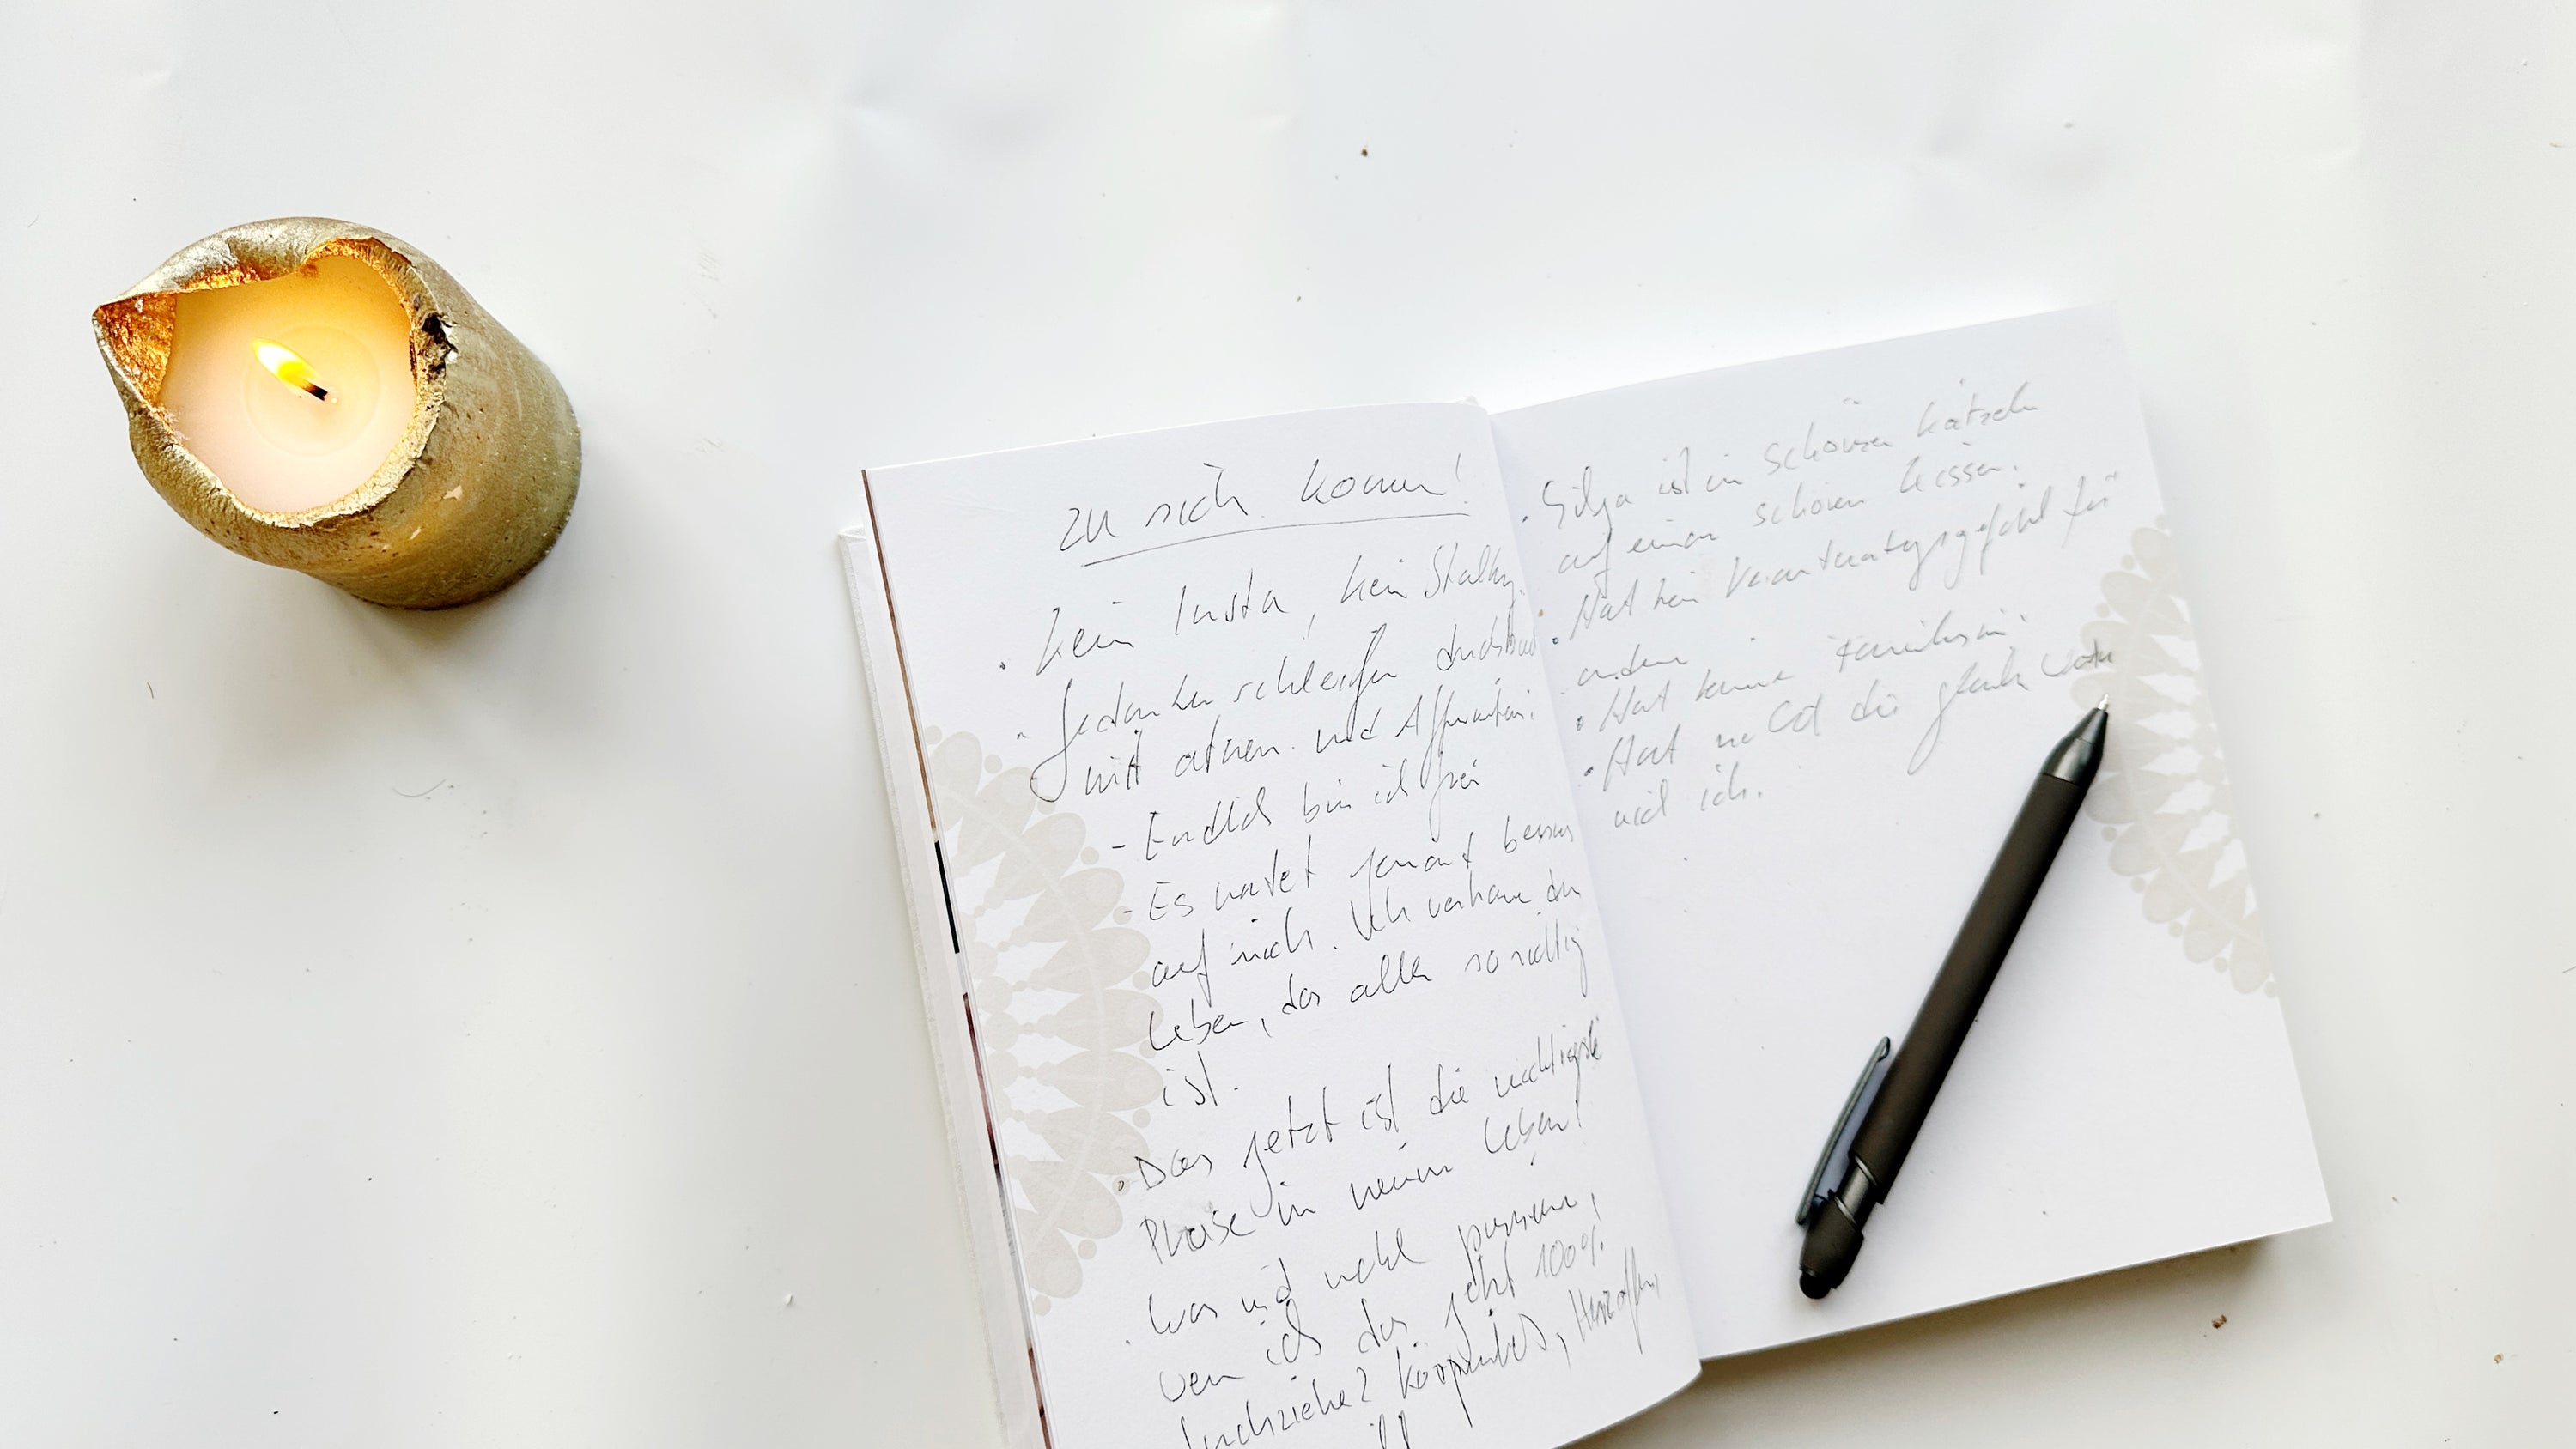 zu sich kommen!
• kein Insta, kein Stalking
• Gedankenschleifen durchbrechen
mit atmen und Affirmation:
- Endlich bin ich frei
- Es wartet jemand besseres
auf mich. Ich vertraue dem
Leben, das alles so richtig
ist.
• Das jetzt ist die wichtigste
Phase in meinem Leben!
• Was wird wohl passieren,
wenn ich das jetzt 100%
durchziehe?
• Silja ist ein schönes Kätzchen
auf einem schönen Kissen.
• Hat kein Verantwortungsgefühl für
andere
• Hat keinen Familiensinn.
• Hat nicht die gleichen Werte
wie ich.